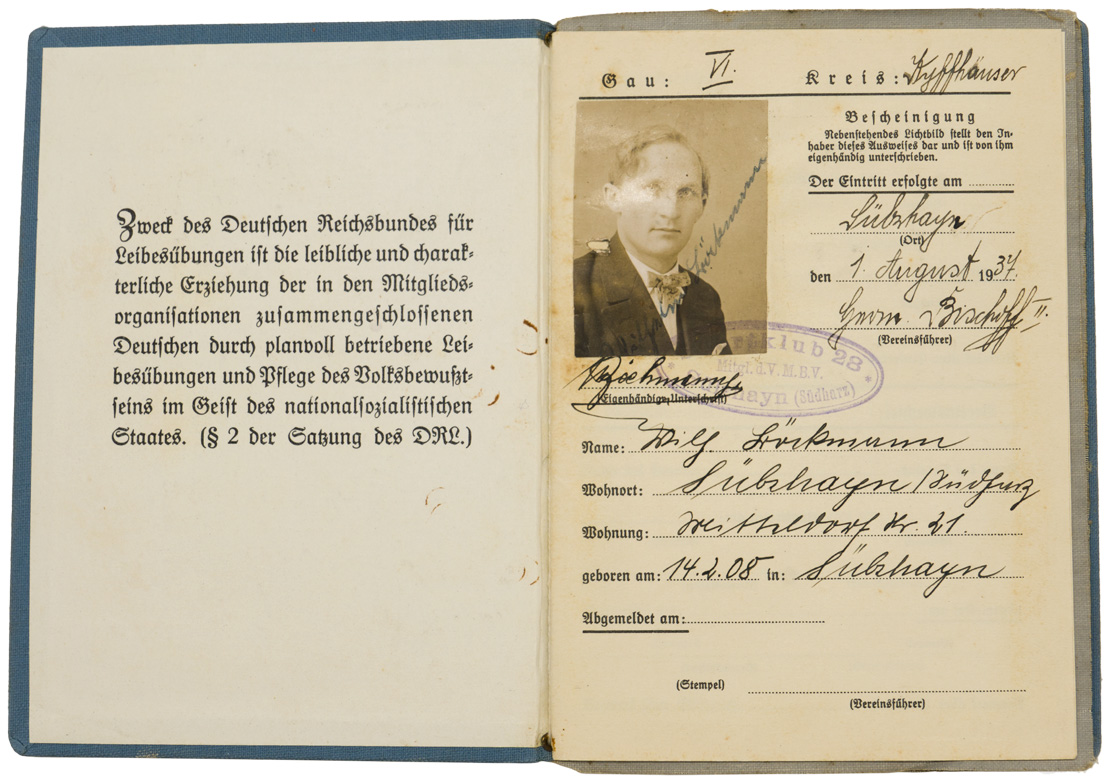 Zweck des Deutschen Reichsbundes für
Leibesübungen ist die leibliche und charak-
terliche Erziehung der in den Mitglieds-
organisationen zusammengeschlossenen
Deutschen durch planvoll betriebene Lei-
besübungen und Pflege des Volksbewußt-
seins im Geist des nationalsozialistischen
Staates. (§ 2 der Satzung des DRL.)
Gau: VI. Kreis: Kyffhäuser
Bescheinigung
Nebenstehendes Lichtbild stellt den In-
haber dieses Ausweises dar und ist von ihm
eigenhändig unterschrieben.
Der Eintritt erfolgte am
Sülzhayn
(Ort)
den 1. August 1937.
Bischoff II.
(Vereinsführer)
klub 28
Mitgl. d. V. M. B. V.
hayn (Südharz)
(Eigenhändige Unterschrift)
Name: Wilh Böckmann
Wohnort: Sülzhayn / Südharz
Wohnung: Mitteldorf Nr. 21.
geboren am: 14.2.08 in: Sülzhayn
Abgemeldet am:
(Stempel)
(Vereinsführer)